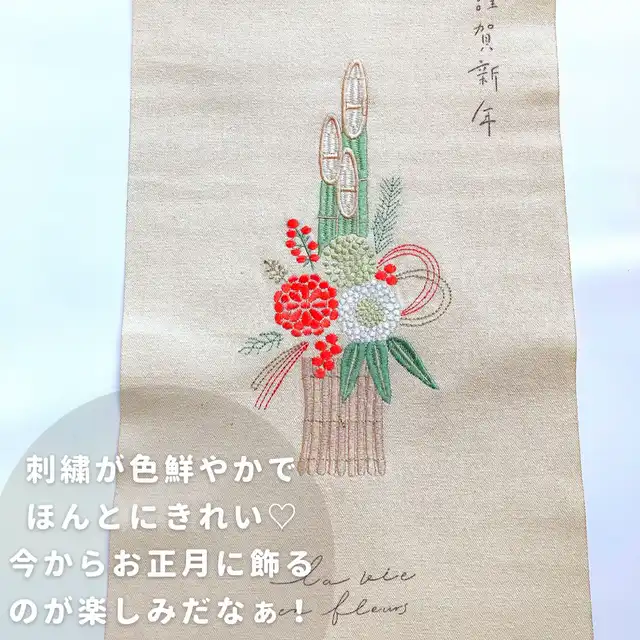 謹賀新年
刺繍が色鮮やかで
ほんとにきれい♡
今からお正月に飾る
のが楽しみだなぁ！
la vie
en fleurs